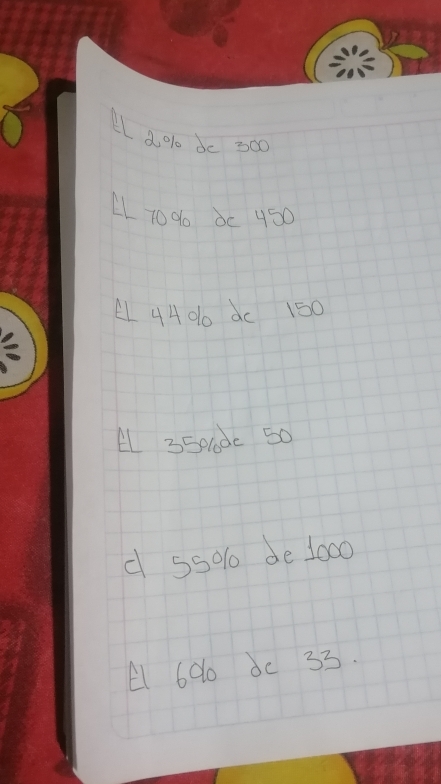 EL 2% de 300
EL 70% de 450
EL 44% de 150
EL 35% de 50
el 55% de 1000
El 6% de 33.